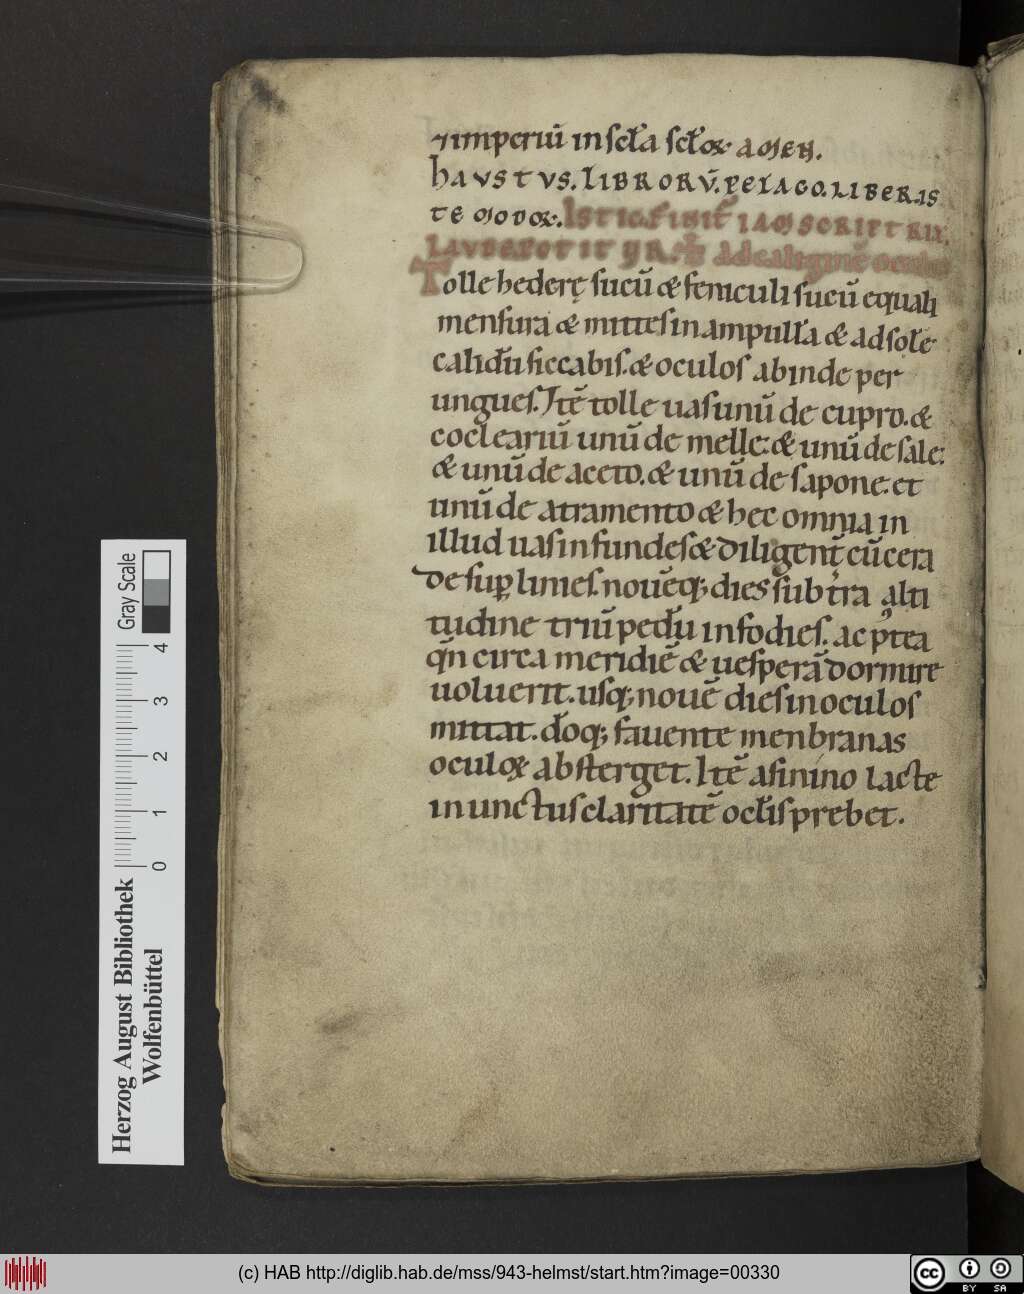 ⁊imperiū in scl̄a scl̄oꝝ AMEN.
hAVSTVS. LIBRORV̄. PELAGO. LIBER. IS
TE MODOꝝ. ISTIC FINIT̄ IAM SCRIPTRIX
LAVDE POTITVR. Ad caliginē oculoꝝ
Tolle hederę sucū & feniculi sucū equali
mensura & mittes in ampulla & ad sole
calidū siccabis. & oculos abinde per
ungues. Itē tolle uas unū de cupro. &
cocleariū unū de melle. & unū de sale.
& unū de aceto. & unū de sapone. et
unū de atramento & hec omnia in
illud uas infundes & diligent̄ cū cera
desup̱ limes. nouēq; dies sub t̄ra alti
tudine triū pedū infodies. ac p̕tea
qn̄ circa meridiē & uesperā dormire
uoluerit. usq; nouē dies in oculos
mittat. dōq; fauente menbranas
oculoꝝ absterget. Itē asinino lacte
inunctus claritatē ocl̄is prebet.
Herzog August Bibliothek
Wolfenbüttel
Gray Scale
0 1 2 3 4
(c) HAB http://diglib.hab.de/mss/943-helmst/start.htm?image=00330
cc BY SA